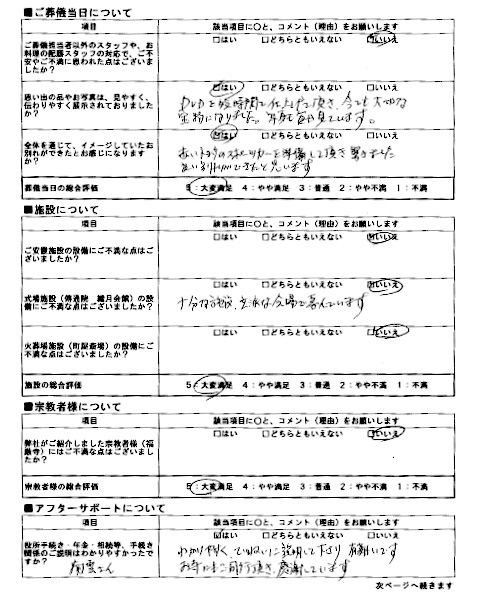 ■ご葬儀当日について
項目 該当項目に○と、コメント（理由）をお願いします
ご葬儀担当者以外のスタッフや、お
料理の配膳スタッフの対応で、ご不
安やご不満に思われた点はございま
したか？
□はい □どちらともいえない □いいえ
思い出の品やお写真は、見やすく、
伝わりやすく展示されておりました
か？
□はい □どちらともいえない □いいえ
DVDを短時間で仕上げて頂き、今でも大切な
宝物になりました。何度も見ています。
全体を通じて、イメージしていたお
別れができたとお感じになります
か？
□はい □どちらともいえない □いいえ
準備して頂き
良いお別れができたと思います
葬儀当日の総合評価 5：大変満足 4：やや満足 3：普通 2：やや不満 1：不満
■施設について
項目 該当項目に○と、コメント（理由）をお願いします
ご安置施設の設備にご不満な点はご
ざいましたか？
□はい □どちらともいえない □いいえ
式場施設（傳通院 繊月会館）の設
備にご不満な点はございましたか？
□はい □どちらともいえない □いいえ
十分な施設、立派な会場で喜んでいます
火葬場施設（町屋斎場）の設備にご
不満な点はございましたか？
□はい □どちらともいえない □いいえ
施設の総合評価 5：大変満足 4：やや満足 3：普通 2：やや不満 1：不満
■宗教者様について
項目 該当項目に○と、コメント（理由）をお願いします
弊社がご紹介しました宗教者様（福
厳寺）にはご不満な点はございまし
たか？
□はい □どちらともいえない □いいえ
宗教者様の総合評価 5：大変満足 4：やや満足 3：普通 2：やや不満 1：不満
■アフターサポートについて
項目 該当項目に○と、コメント（理由）をお願いします
役所手続き・年金・相続等、手続き
関係のご説明はわかりやすかったで
すか？
□はい □どちらともいえない □いいえ
わかり易く、ていねいに説明して下さり 有難いです
お寺にもご同行頂き、感謝しています
次ページへ続きます